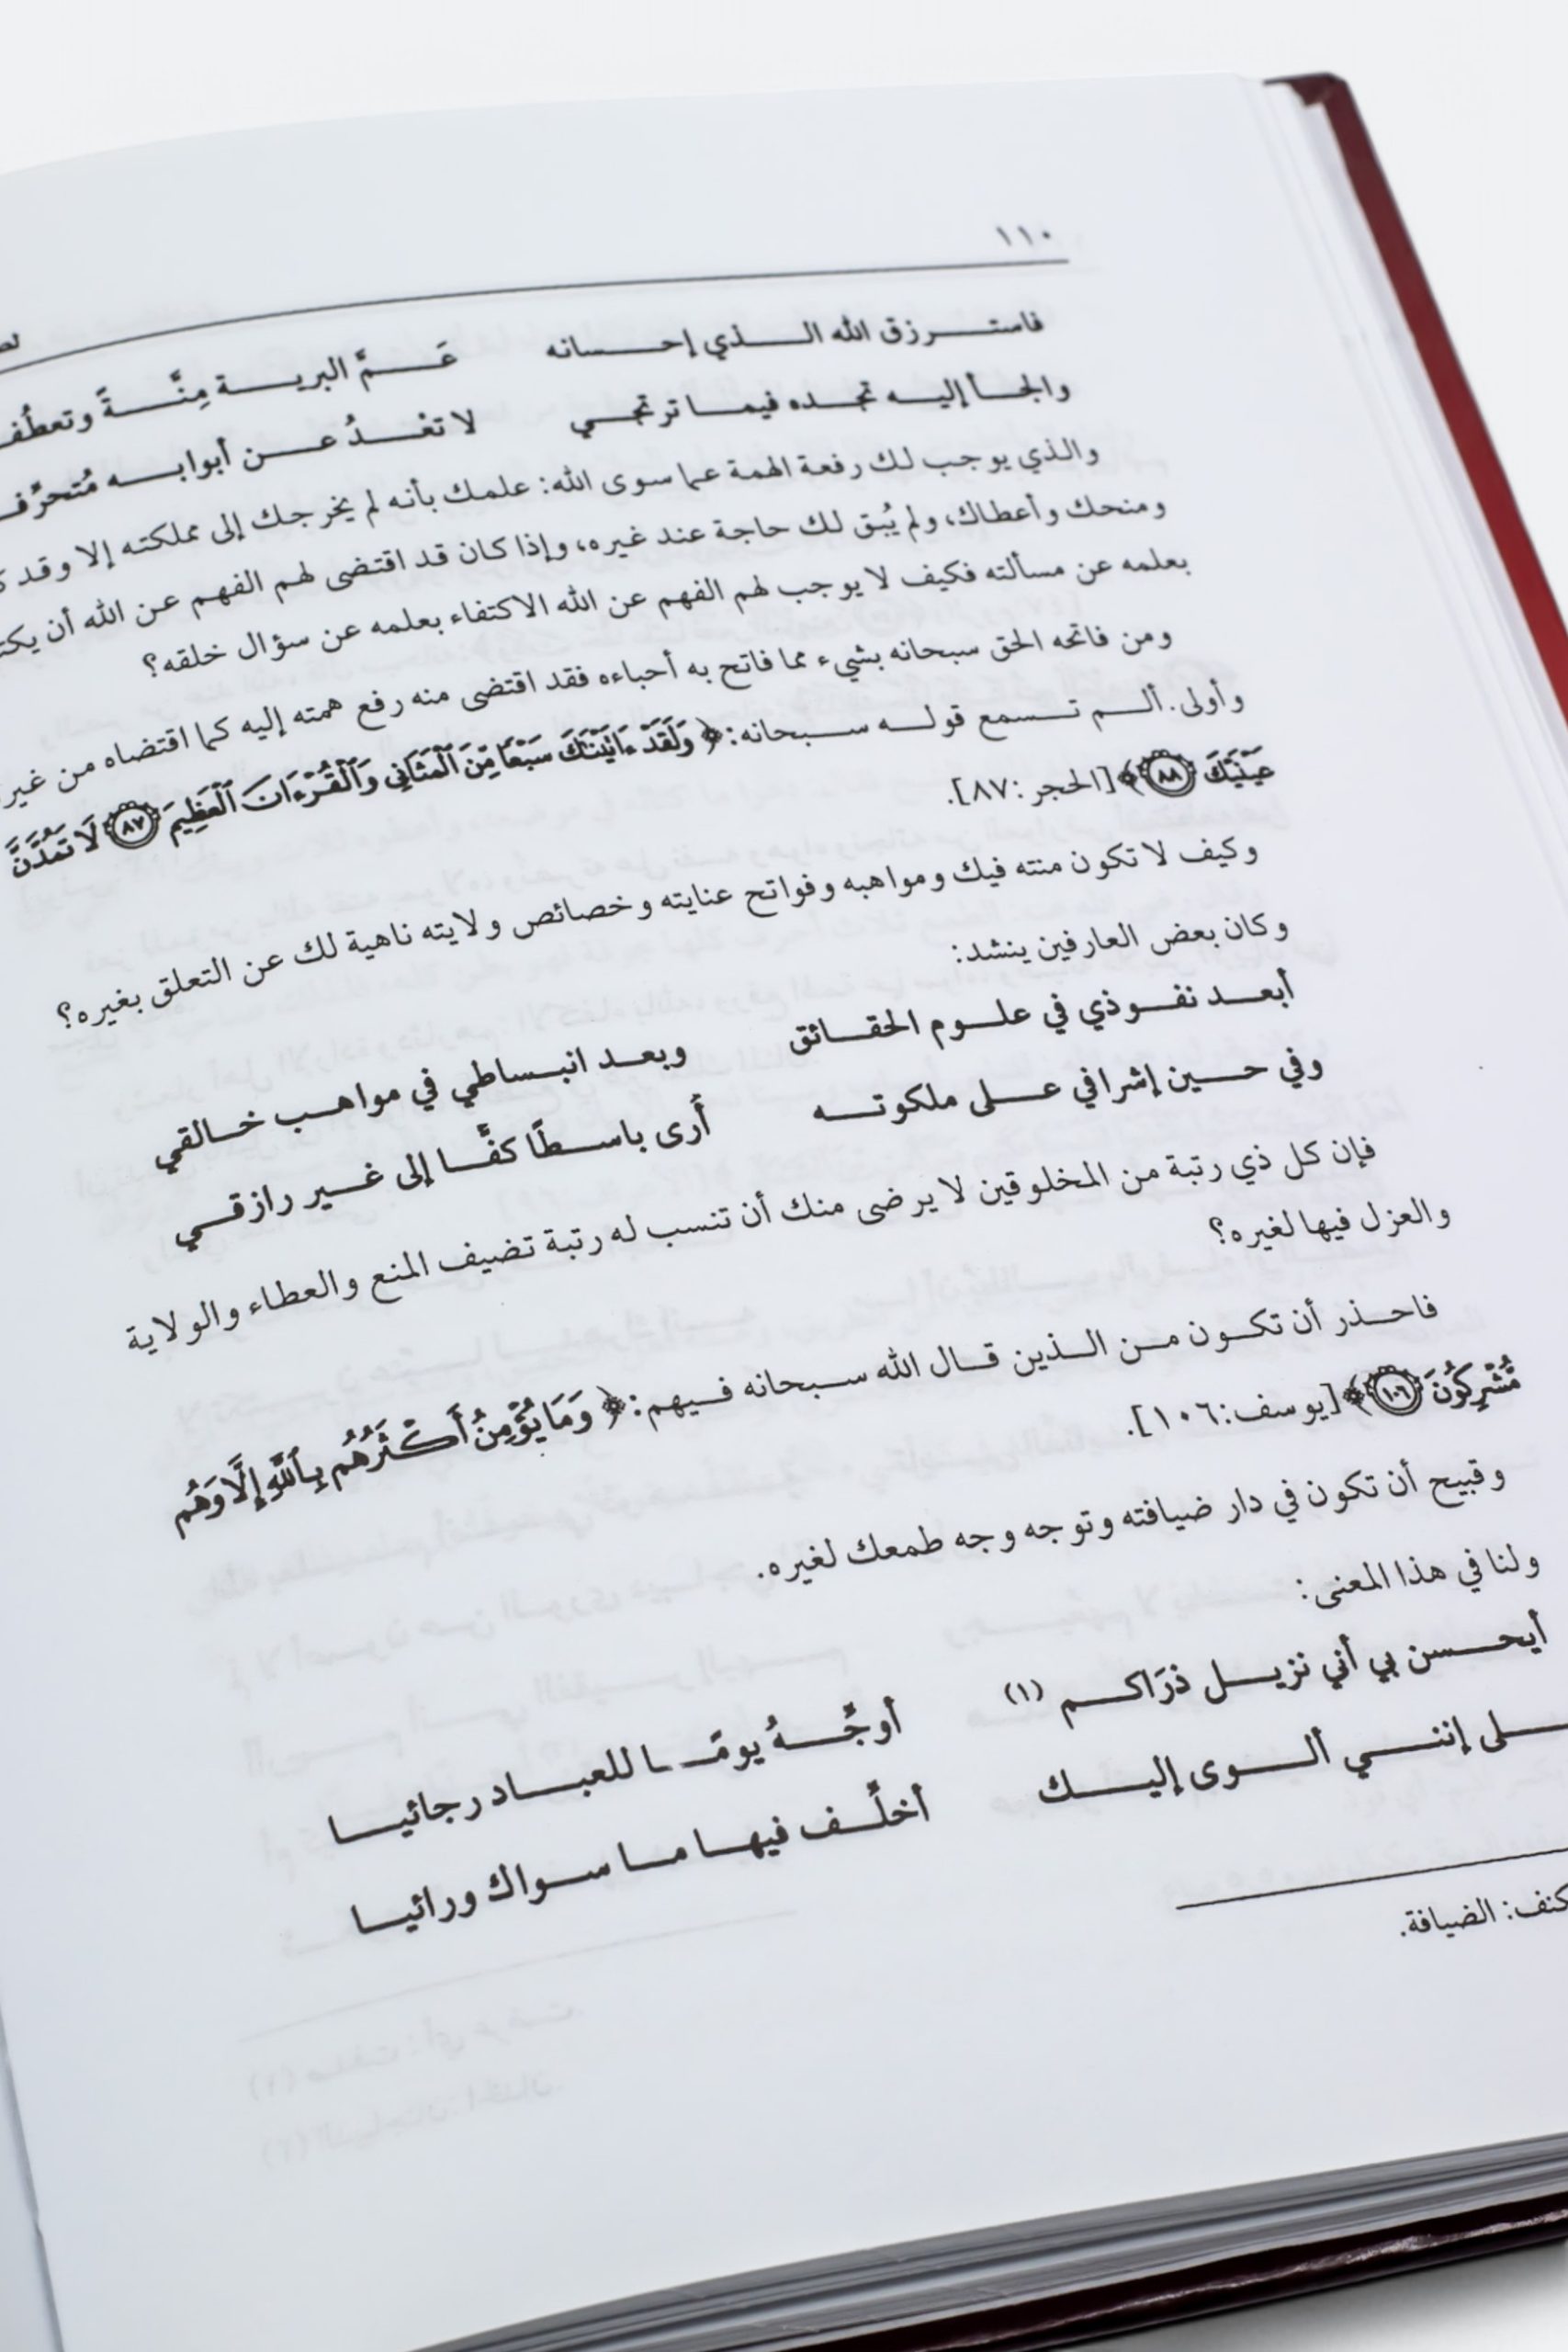 ١١٠
فاستـرزق الله الـذي إحـسانه عَـمَّ البريـة مِنَّـةً وتعطُّف
والجـأ إليـه تجـده فيمـا ترتجـي لا تغْـدُ عـن أبوابـه مُتحرِّف
والذي يوجب لك رفعة الهمة عما سوى الله: علمك بأنه لم يخرجك إلى مملكته إلا وقد
ومنحك وأعطاك، ولم يُبق لك حاجة عند غيره، وإذا كان قد اقتضى لهم الفهم عن الله أن
بعلمه عن مسألته فكيف لا يوجب لهم الفهم عن الله الاكتفاء بعلمه عن سؤال خلقه؟
ومن فاتحه الحق سبحانه بشيء مما فاتح به أحباءه فقد اقتضى منه رفع همته إليه كما اقتضاه من
وأولى. ألـم تـسمع قولـه سـبحانه: ﴿ وَلَقَدْ ءَاتَيْنَٰكَ سَبْعًا مِّنَ ٱلْمَثَانِى وَٱلْقُرْءَانَ ٱلْعَظِيمَ ٨٧ لَا تَمُدَّنَّ
عَيْنَيْكَ ٨٨ ﴾ [الحجر: ٨٧].
وكيف لا تكون منته فيك ومواهبه وفواتح عنايته وخصائص ولايته ناهية لك عن التعلق بغيره؟
وكان بعض العارفين ينشد:
أبعـد نفـوذي في علـوم الحقـائق وبعـد انبـساطي في مواهـب خـالقي
وفي حـين إشرافي عـلى ملكوتـه أُرى باسـطًا كفَّـا إلى غـير رازقـي
فإن كل ذي رتبة من المخلوقين لا يرضى منك أن تنسب له رتبة تضيف المنع والعطاء والولاية
والعزل فيها لغيره؟
فاحـذر أن تكـون مـن الـذين قـال الله سـبحانه فـيهم: ﴿ وَمَا يُؤْمِنُ أَكْثَرُهُم بِٱللَّهِ إِلَّا وَهُم
مُّشْرِكُونَ ١٠٦ ﴾ [يوسف: ١٠٦].
وقبيح أن تكون في دار ضيافته وتوجه وجه طمعك لغيره.
ولنا في هذا المعنى:
أيحـسن بي أني نزيـل ذرَاكـم (١) أوجِّـهُ يومًـا للعبـاد رجائيـا
ـلى إننـي ألـوى إليـك أخلِّـف فيهـا مـا سـواك ورائيـا
كنف: الضيافة.